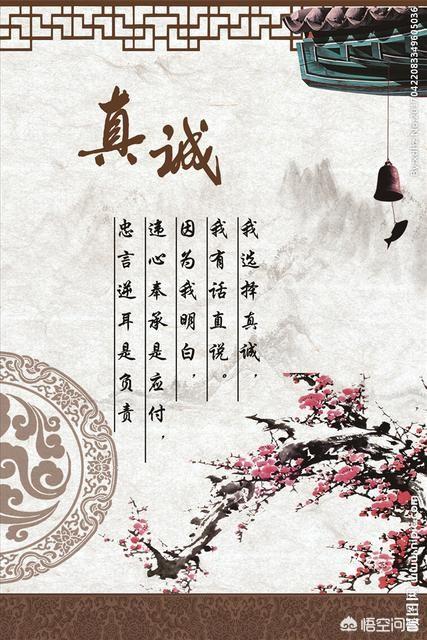 真诚
我选择真诚，
我有话直说。
因为我明白，
违心奉承是应付，
忠言逆耳是负责
悟空问答